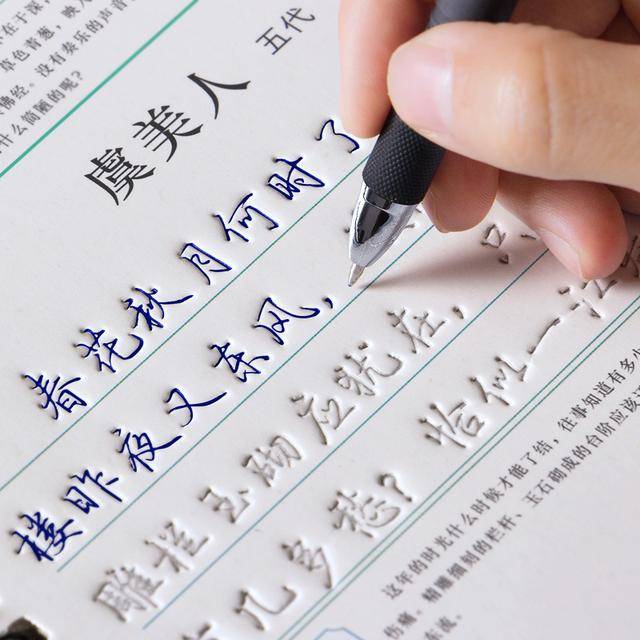 在于深
草色
佛经。没有奏乐的声音
什么简陋的呢？
虞美人 五代
春花秋月何时了
楼昨夜又东风，
雕栏玉砌应犹在，只
几多愁？恰似一江
这年的时光什么时候才能了结，往事知道有多少
伤痛。精雕细刻的栏杆、玉石砌成的台阶应该还
东流。